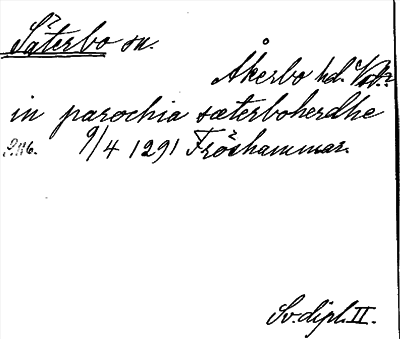 Säterbo sn.
Åkerbo hd. Vstm.
in parochia sæterboherdhe
S. 116. 9/4 1291 Fröshammar.
Sv. dipl. II.